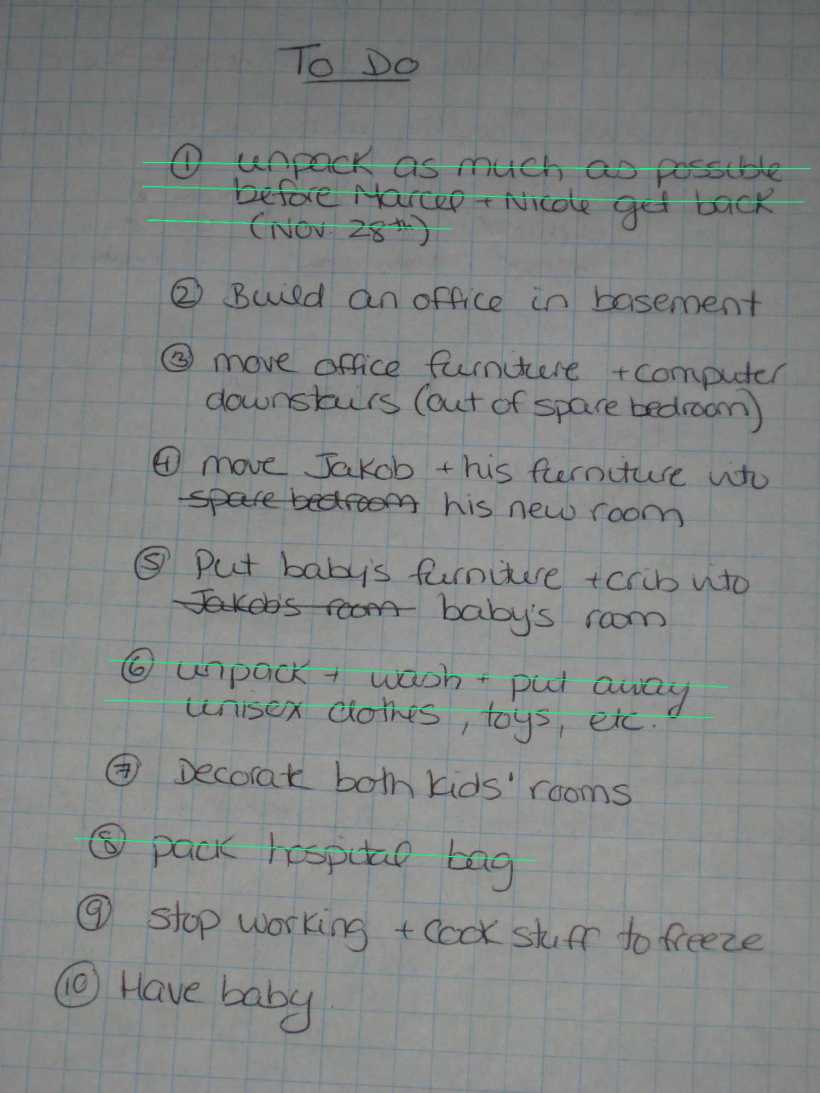 To Do
① unpack as much as possible
before Marcel + Nicole get back
(Nov. 28th)
② Build an office in basement
③ move office furniture + computer
downstairs (out of spare bedroom)
④ move Jakob + his furniture into
spare bedroom his new room
⑤ Put baby's furniture + crib into
Jakob's room baby's room
⑥ unpack + wash + put away
unisex clothes, toys, etc.
⑦ Decorate both kids' rooms
⑧ pack hospital bag
⑨ stop working + cook stuff to freeze
⑩ Have baby.